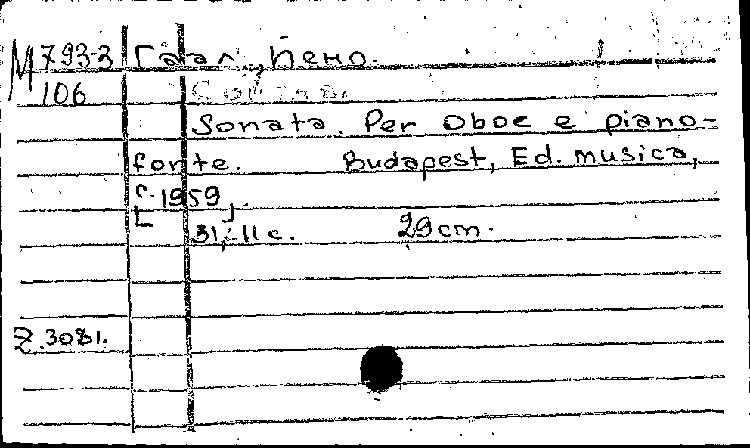 М 793-3 Гаал, Йено.
106
Sonata. Per Oboe e piano-
forte. Budapest, Ed. musica,
[c.1959].
31, 11 c. 29 cm.
Z.3081.